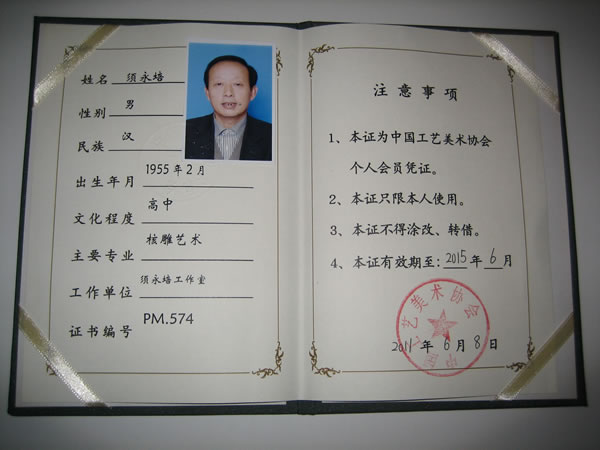 姓名 须永培
性别 男
民族 汉
出生年月 1955年2月
文化程度 高中
主要专业 核雕艺术
工作单位 须永培工作室
证书编号 PM.574
注意事项
1、本证为中国工艺美术协会
个人会员凭证。
2、本证只限本人使用。
3、本证不得涂改、转借。
4、本证有效期至:2015年6月
中国工艺美术协会
2011年6月8日